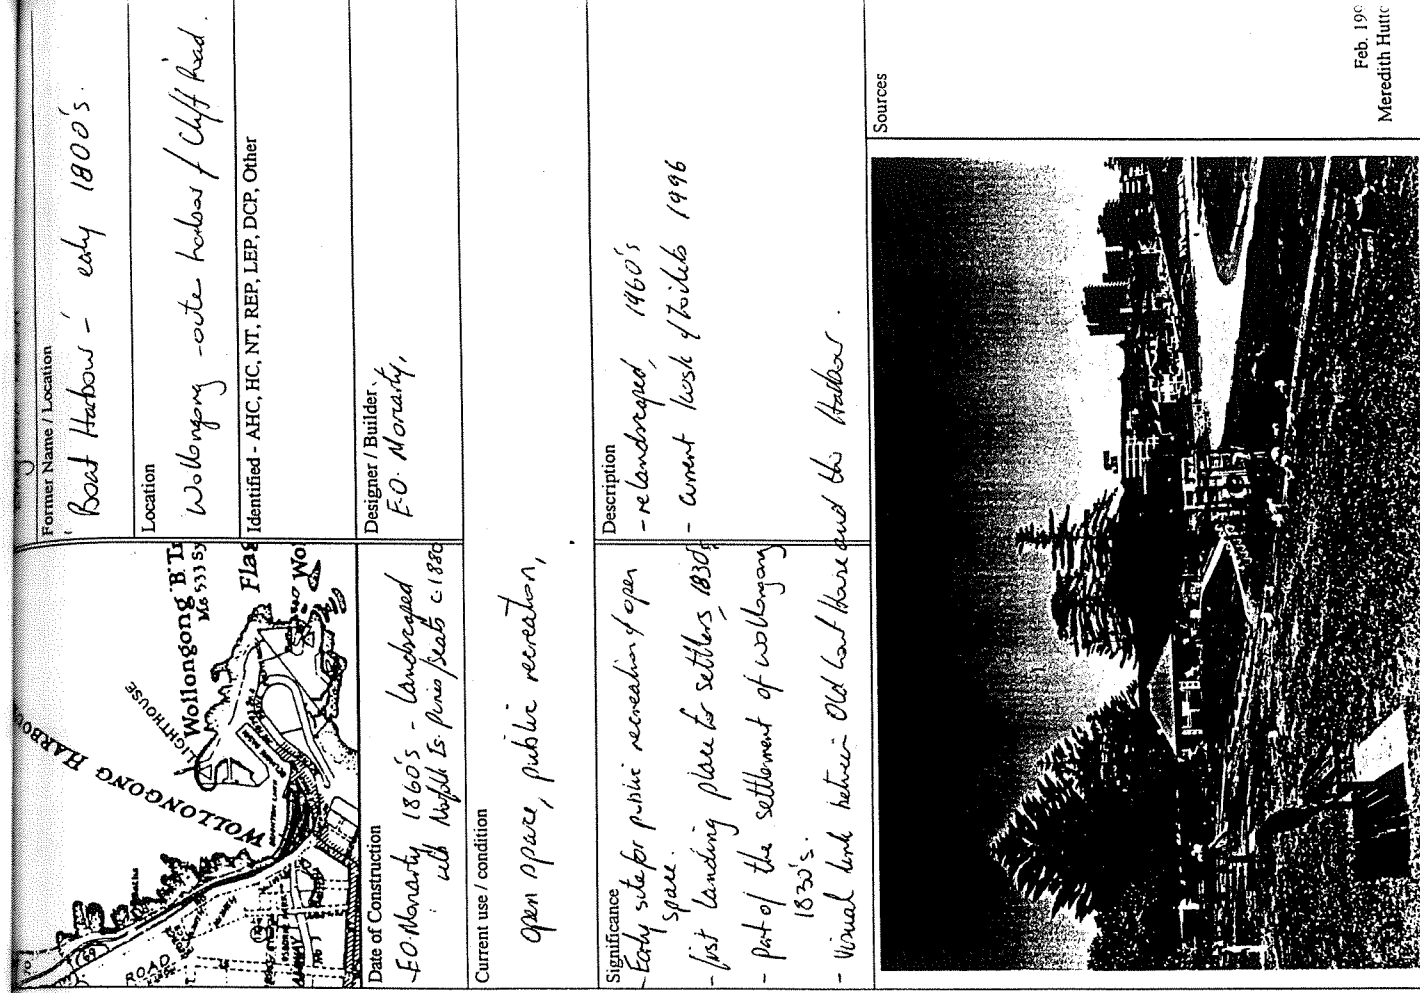 Former Name / Location
Boat Harbour - early 1800's.
Location
Wollongong - oute harbour / Cliff Road.
Identified - AHC, HC, NT, REP, LEP, DCP, Other
WOLLONGONG HARBOUR
LIGHTHOUSE
Wollongong B
Flag
Wo
ROAD
Date of Construction
- E.O. Moriarty 1860's - Landscaped
with Norfolk Is. pines/seats c1880
Designer / Builder
E.O. Moriarty,
Current use / condition
open space, public recreation,
Significance
- Early site for public recreation & open
space.
- first landing place for settlers, 1830's
- part of the settlement of wollongong
1830's.
- visual link between Old Court House and the Harbour.
Description
- relandscaped, 1960's
- current kiosk & toilets 1996
Sources
Feb. 199
Meredith Hutto